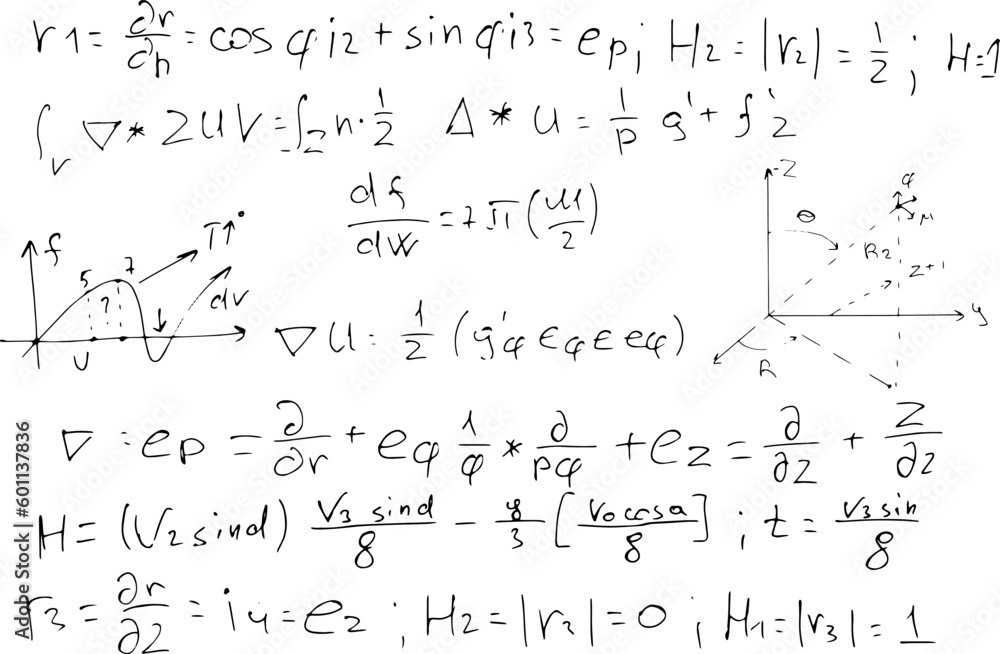 r1 = ∂r/∂n = cos φ i2 + sin φ i3 = ep; H2 = |r2| = 1/2; H=1
∫v ▽* 2UV = ∫2 n · 1/2 Δ * u = 1/p g' + f'2
df/dW = 2π (u1/2)
f 5 7 ? U T↑° dv
Z θ φ μ R2 z+1 y R
▽U = 1/2 (g'φ ε φ ε eφ)
▽ : ep = ∂/∂r + eφ 1/φ * ∂/pφ + ez = ∂/∂z + Z/∂z
H = (V2 sind) V3 sind/8 - 8/3 [V0 cosa/8]; t = V3 sin/8
r3 = ∂r/∂z = i4 = ez; H2 = |r3| = 0; H1 = |r3| = 1
Adobe Stock | #601137836